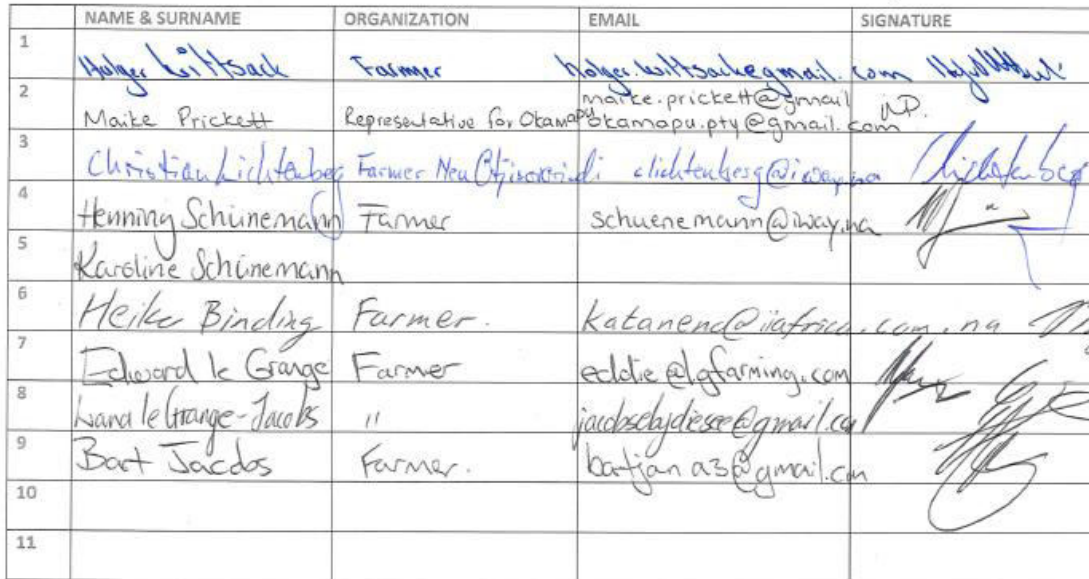 NAME & SURNAME ORGANIZATION EMAIL SIGNATURE
1 Holger Wittsack Farmer holger.wittsack@gmail.com
2 Maike Prickett Representative for Okamapu maike.prickett@gmail
okamapu.pty@gmail.com MP.
3 Christian Lichtenberg Farmer Neu clichtenberg@iway.na
4 Henning Schünemann Farmer schuenemann@iway.na
5 Karoline Schünemann
6 Heike Binding Farmer. katanend@iafrica.com.na
7 Edward le Grange Farmer eddie@lgfarming.com
8 Lana le Grange-Jacobs "
9 Bart Jacobs Farmer. bartjan a3@gmail.com
10
11